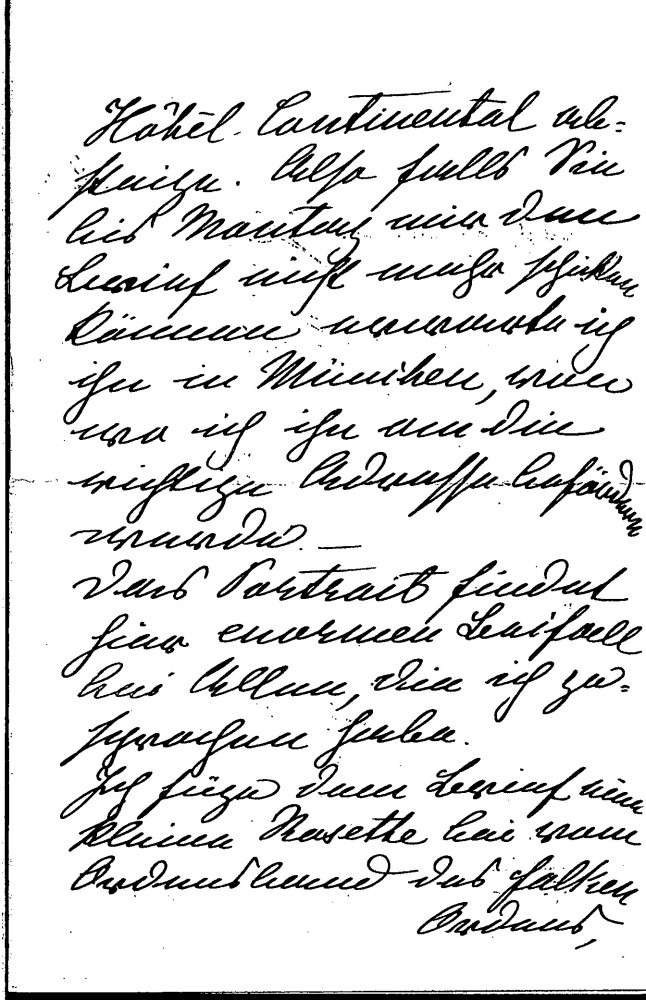 Hôtel Continental ab=
steige. Also falls Sie
bis Montag mir den
Brief nicht mehr schicken
können erwarte ich
ihn in München, von
wo ich ihn an die
richtige Adresse befördern
werde. —
Das Portrait findet
hier enormen Beifall
bei Allen, die ich ge=
sprochen habe.
Ich füge dem Brief eine
kleine Rosette bei vom
Ordensband des Falken
Ordens,